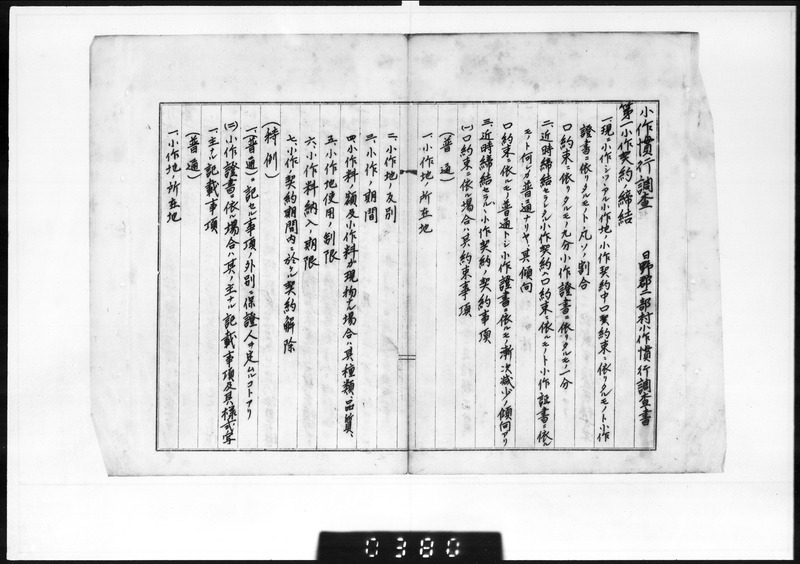 小作慣行調査　日野郡二部村小作慣行調査書
第一小作契約ノ締結
一、現ニ小作シツヽアル小作地ノ小作契約中口契約束ニ依リタルモノト小作
證書ニ依リタルモノトノ凡ソノ割合
口約束ニ依リタルモノ九分小作證書ニ依リタルモノ一分
二、近時締結セラレタル小作契約ハ口約束ニ依ルモノト小作証書ニ依ル
モノト何レガ普通ナリヤ、其傾向
口約束ニ依ルモノ普通トシ小作證書ニ依ルモノ漸次減少ノ傾向アリ
三、近時締結セラルヽ小作契約ノ契約事項
(一)口約束ニ依ル場合ハ其約束事項
(普通)
一、小作地ノ所在地
二、小作地ノ反別
三、小作ノ期間
四、小作料ノ額及小作料ガ現物ナル場合ハ其種類、品質、
五、小作地使用ノ制限
六、小作料納入ノ期限
七、小作ノ契約期間内ニ於ケル契約解除
(特例)
一、(普通)ニ記セル事項ノ外別ニ保證人ヲ定ムルコトアリ
(二)小作證書ニ依ル場合ハ其ノ主ナル記載事項及其様式寫
一、主ナル記載事項
(普通)
一、小作地ノ所在地
0380